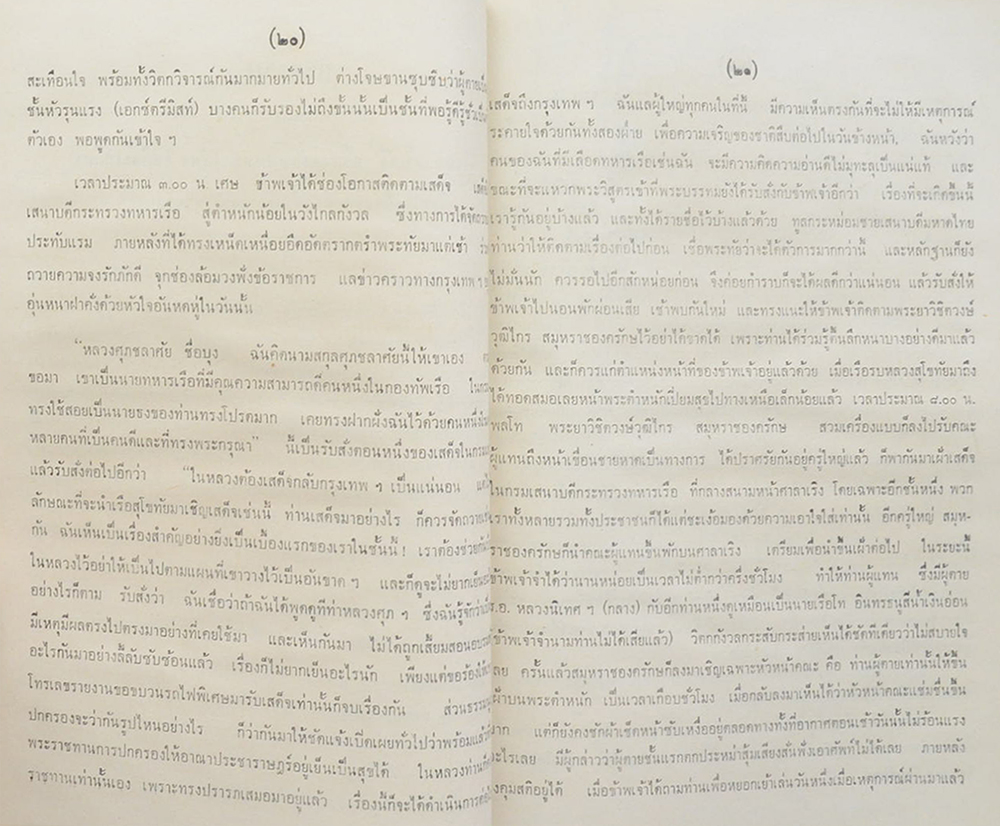 (๒๐)
สะเทือนใจ พร้อมทั้งวิตกวิจารณ์กันมากมายทั่วไป ต่างโจษขานซุบซิบว่าผู้ตาย
ชั้นหัวรุนแรง (เอกซ์ตรีมิสท์) บางคนก็รับรองไม่ถึงขั้นนั้นเป็นชั้นที่พอรู้ดีรู้ชั่ว
ตัวเอง พอพูดกันเข้าใจ ฯ
เวลาประมาณ ๓.๐๐ น. เศษ ข้าพเจ้าได้ช่องโอกาสติดตามเสด็จ
เสนาบดีกระทรวงทหารเรือ สู่ตำหนักน้อยในวังไกลกังวล ซึ่งทางการได้จัด
ประทับแรม ภายหลังที่ได้ทรงเหน็ดเหนื่อยอึดอัดตรากตรำพระทัยมาแต่เช้า
ถวายความจงรักภักดี จุกช่องล้อมวงฟังข้อราชการ แลข่าวคราวทางกรุงเทพฯ
อุ่นหนาฝาคั่งด้วยหัวใจอันหดหู่ในวันนั้น
"หลวงศุภชลาศัย ชื่อบุง ฉันคิดนามสกุลศุภชลาศัยนี้ให้เขาเอง
ขอมา เขาเป็นนายทหารเรือที่มีคุณความสามารถดีคนหนึ่งในกองทัพเรือ
ทรงใช้สอยเป็นนายธงของท่านทรงโปรดมาก เคยทรงฝากฝังฉันไว้ด้วยคนหนึ่ง
หลายคนที่เป็นคนดีและที่ทรงพระกรุณา" นี้เป็นรับสั่งตอนหนึ่งของเสด็จในกรม
แล้วรับสั่งต่อไปอีกว่า "ในหลวงต้องเสด็จกลับกรุงเทพ ฯ เป็นแน่นอน
ลักษณะที่จะนำเรือสุโขทัยมาเชิญเสด็จเช่นนี้ ท่านเสด็จมาอย่างไร ก็ควรจัดถวาย
กัน ฉันเห็นเป็นเรื่องสำคัญอย่างยิ่งเป็นเบื้องแรกของเราในชั้นนี้! เราต้องช่วย
ในหลวงไว้อย่าให้เป็นไปตามแผนที่เขาวางไว้เป็นอันขาด ฯ และก็ดูจะไม่ยากเย็น
อย่างไรก็ตาม รับสั่งว่า ฉันเชื่อว่าถ้าฉันได้พูดดูทีท่าหลวงศุภ ฯ ซึ่งฉันรู้จัก
มีเหตุมีผลตรงไปตรงมาอย่างที่เคยใช้มา และเห็นกันมา ไม่ได้ถูกเสี้ยมสอน
อะไรกันมาอย่างลี้ลับซับซ้อนแล้ว เรื่องก็ไม่ยากเย็นอะไรนัก เพียงแต่ขอร้อง
โทรเลขรายงานขอขบวนรถไฟพิเศษมารับเสด็จเท่านั้นก็จบเรื่องกัน ส่วน
ปกครองจะว่ากันรูปไหนอย่างไร ก็ว่ากันมาให้ชัดแจ้งเปิดเผยทั่วไปว่าพร้อมแล้ว
พระราชทานการปกครองให้อาณาประชาราษฎร์อยู่เย็นเป็นสุขได้ ในหลวงท่าน
ราชทานเท่านั้นเอง เพราะทรงปรารภเสมอมาอยู่แล้ว เรื่องนี้ก็จะได้ดำเนินการ
(๒๑)
เสด็จถึงกรุงเทพ ฯ ฉันแลผู้ใหญ่ทุกคนในที่นี้ มีความเห็นตรงกันที่จะไม่ให้มีเหตุการณ์
ระคายใจด้วยกันทั้งสองฝ่าย เพื่อความเจริญของชาติสืบต่อไปในวันข้างหน้า, ฉันหวังว่า
คนของฉันที่มีเลือดทหารเรือเช่นฉัน จะมีความคิดความอ่านดีไม่มุทะลุเป็นแน่แท้ และ
ขณะที่จะแหวกพระวิสูตรเข้าที่พระบรรทมยังได้รับสั่งกับข้าพเจ้าอีกว่า เรื่องที่จะเกิดขึ้นนี้
เรารู้กันอยู่บ้างแล้ว และทั้งได้รายชื่อไว้บ้างแล้วด้วย ทูลกระหม่อมชายเสนาบดีมหาดไทย
ท่านว่าให้ติดตามเรื่องต่อไปก่อน เชื่อพระทัยว่าจะได้ตัวการมากกว่านี้ และหลักฐานก็ยัง
ไม่มั่นนัก ควรรอไปอีกสักหน่อยก่อน จึงค่อยกำราบก็จะได้ผลดีกว่าแน่นอน แล้วรับสั่งให้
ข้าพเจ้าไปนอนพักผ่อนเสีย เช้าพบกันใหม่ และทรงแนะให้ข้าพเจ้าติดตามพระยาวิชิตวงษ์
วุฒิไกร สมุหราชองครักษ์ไว้อย่าได้ขาดได้ เพราะท่านได้ร่วมรู้ตื้นลึกหนาบางอย่างดีมาแล้ว
ด้วยกัน และก็ควรแก่ตำแหน่งหน้าที่ของข้าพเจ้าอยู่แล้วด้วย เมื่อเรือรบหลวงสุโขทัยมาถึง
ได้ทอดสมอเลยหน้าพระตำหนักเปี่ยมสุขไปทางเหนือเล็กน้อยแล้ว เวลาประมาณ ๘.๐๐ น.
พลโท พระยาวิชิตวงษ์วุฒิไกร สมุหราชองครักษ์ สวมเครื่องแบบก็ลงไปรับคณะ
ผู้แทนถึงหน้าเขื่อนชายหาดเป็นทางการ ได้ปราศรัยกันอยู่ครู่ใหญ่แล้ว ก็พากันมาเฝ้าเสด็จ
ในกรมเสนาบดีกระทรวงทหารเรือ ที่กลางสนามหน้าศาลาเริง โดยเฉพาะอีกชั้นหนึ่ง พวก
เราทั้งหลายรวมทั้งประชาชนก็ได้แต่ชะเง้อมองด้วยความเอาใจใส่เท่านั้น อีกครู่ใหญ่ สมุห-
ราชองครักษ์ก็นำคณะผู้แทนขึ้นพักบนศาลาเริง เตรียมเพื่อนำขึ้นเฝ้าต่อไป ในระยะนี้
ข้าพเจ้าจำได้ว่านานหน่อยเป็นเวลาไม่ต่ำกว่าครึ่งชั่วโมง ทำให้ท่านผู้แทน ซึ่งมีผู้ตาย
ร.อ. หลวงนิเทศ ฯ (กลาง) กับอีกท่านหนึ่งดูเหมือนเป็นนายเรือโท อินทรธนูสีน้ำเงินอ่อน
(ข้าพเจ้าจำนามท่านไม่ได้เสียแล้ว) วิตกกังวลกระสับกระส่ายเห็นได้ชัดทีเดียวว่าไม่สบายใจ
เลย ครั้นแล้วสมุหราชองครักษ์ก็ลงมาเชิญเฉพาะหัวหน้าคณะ คือ ท่านผู้ตายเท่านั้นให้ขึ้น
เฝ้าบนพระตำหนัก เป็นเวลาเกือบชั่วโมง เมื่อกลับลงมาเห็นได้ว่าหัวหน้าคณะแช่มชื่นขึ้น
มาก แต่ก็ยังคงซักผ้าเช็ดหน้าซับเหงื่ออยู่ตลอดทางทั้งที่อากาศตอนเช้าวันนั้นไม่ร้อนแรง
อะไรเลย มีผู้กล่าวว่าผู้ตายชั้นแรกตกประหม่าสุ้มเสียงสั่นฟังเอาศัพท์ไม่ได้เลย ภายหลัง
คงคุมสติอยู่ได้ เมื่อข้าพเจ้าได้ถามท่านเพื่อหยอกเย้าเล่นวันหนึ่งเมื่อเหตุการณ์ผ่านมาแล้ว